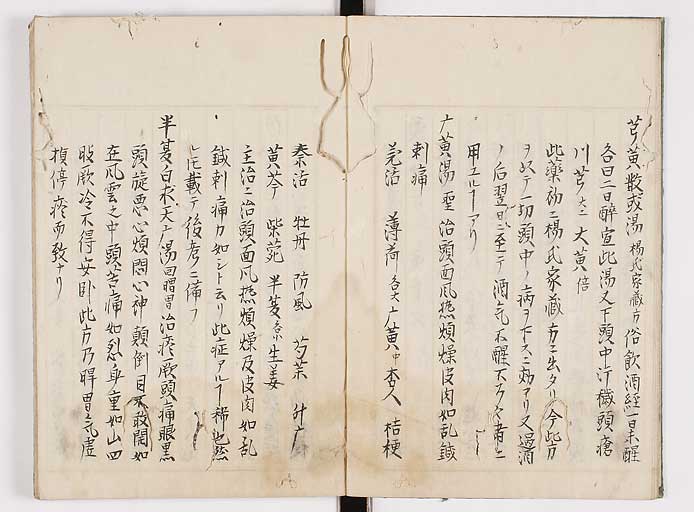 芎黄散或湯 楊氏家蔵方 俗飲酒經一日未醒
各曰二日醉宣此湯又下頭中汗穢頭瘡
川芎 大 大黄 倍
此薬初ニ楊氏家蔵方ニ出タリ今此方
ヲ以テ一切頭中ノ病ヲ下スニ効アリ又過酒
ノ后翌日ニ至テ酒气不醒下ル者ニ
用ユル アリ
广黄湯 聖 治頭面风热煩燥皮肉如乱鍼
刺痛
羌活 薄荷 各大 广黄 中 杏人 桔梗
秦活 牡丹 防風 芍薬 升广
黄芩 柴菀 半夏 各小 生姜
主治ニ治頭面风热煩燥及皮肉如乱
鍼刺痛カ如シト云リ此症アル 稀也然
𪜈載テ後考ニ備フ
半夏白朮天广湯 回 脾胃 治痰厥頭痛眼黒
頭旋悪心煩悶心神顛倒目不敢開如
在风雲之中頭苦痛如裂身重如山四
肢厥冷不得安卧此方乃脾胃气虚
損停痰而致ナリ